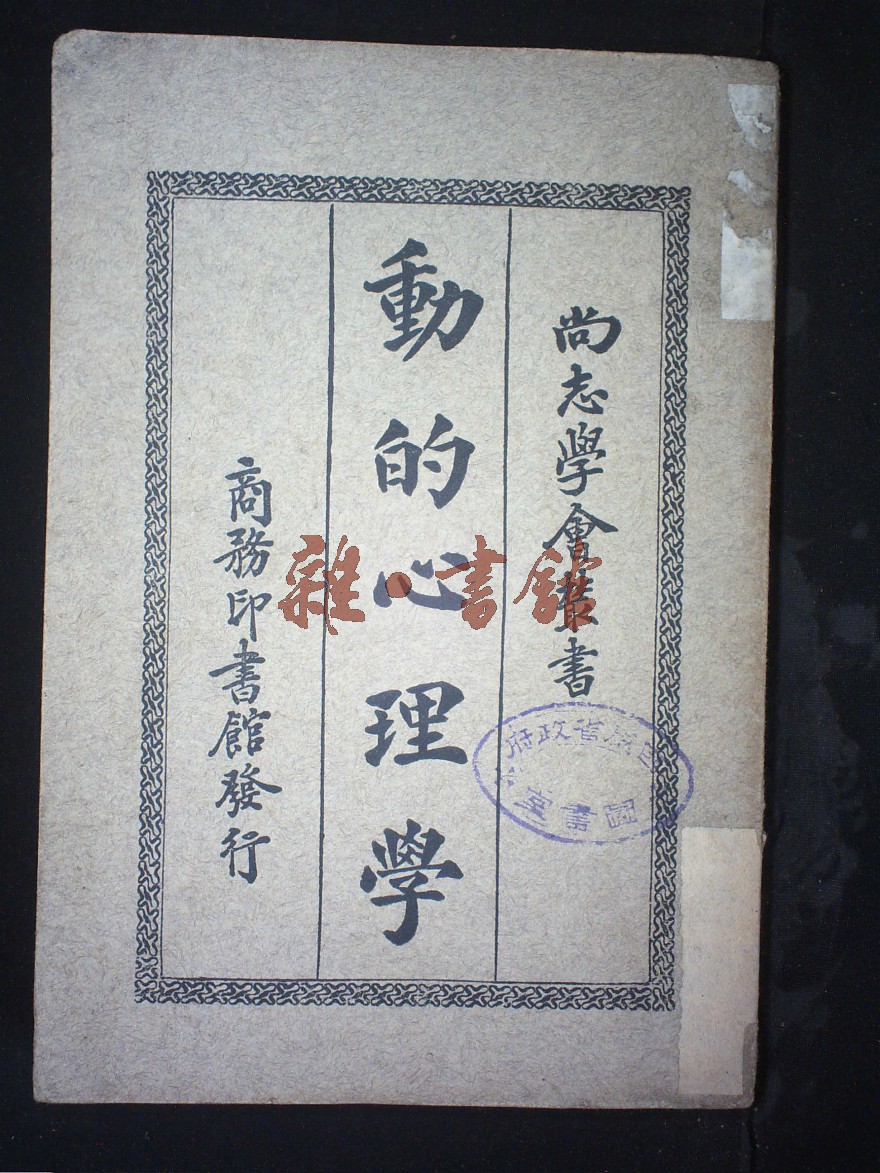 尚志學會叢書
動的心理學
商務印書館發行
雜·書館
省政府
圖書室